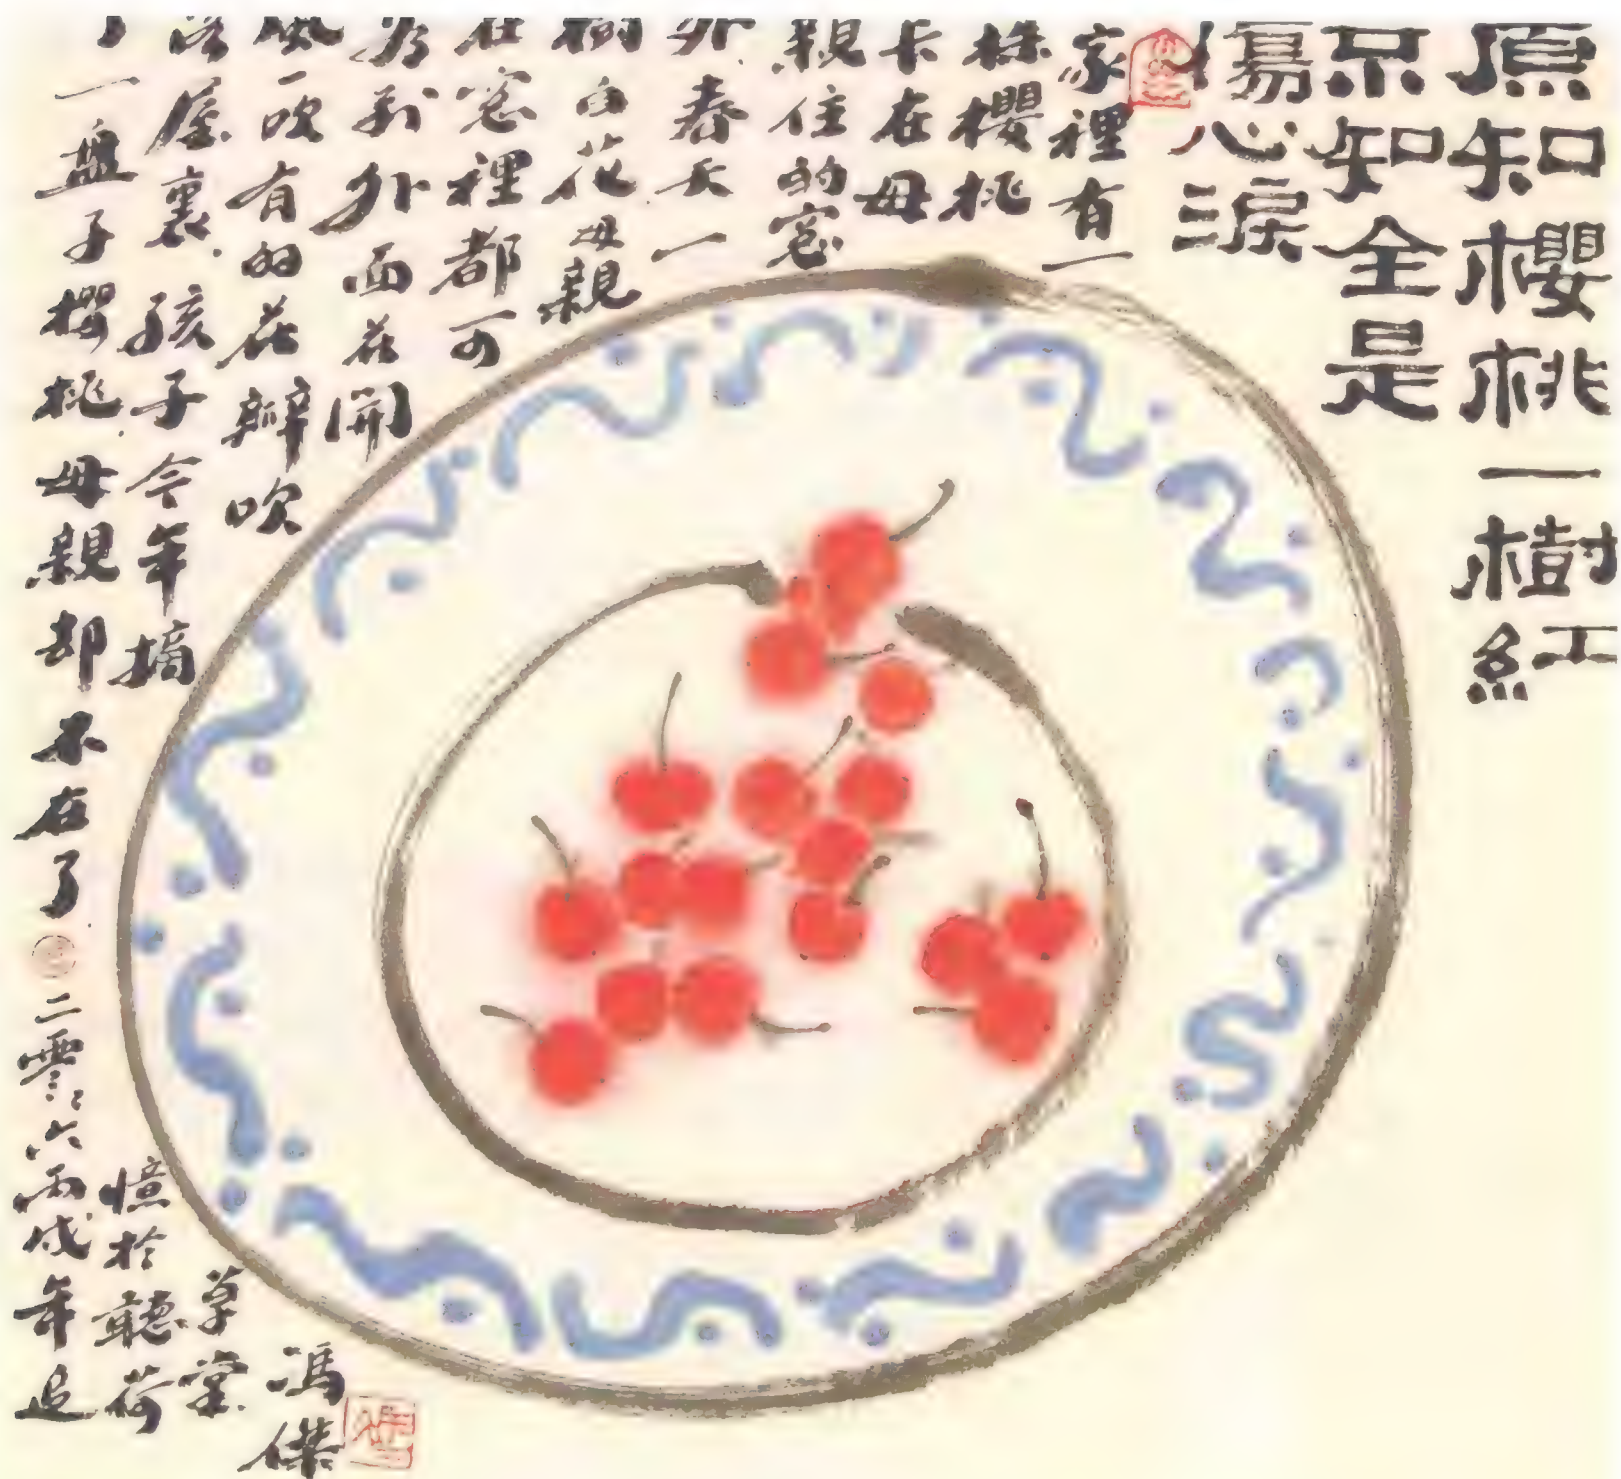 原知櫻桃一樹紅
知全是
傷心淚
家裡有一
株櫻桃
卡在母
親住的窗
外春天一
樹白花母親
在窗裡都可
到外面花開
風一吹有的花瓣吹
落屋裏孩子今年摘
了一盤子櫻桃母親却不在了
二零〻六丙戌年追
憶於聽荷
草堂
馮傑